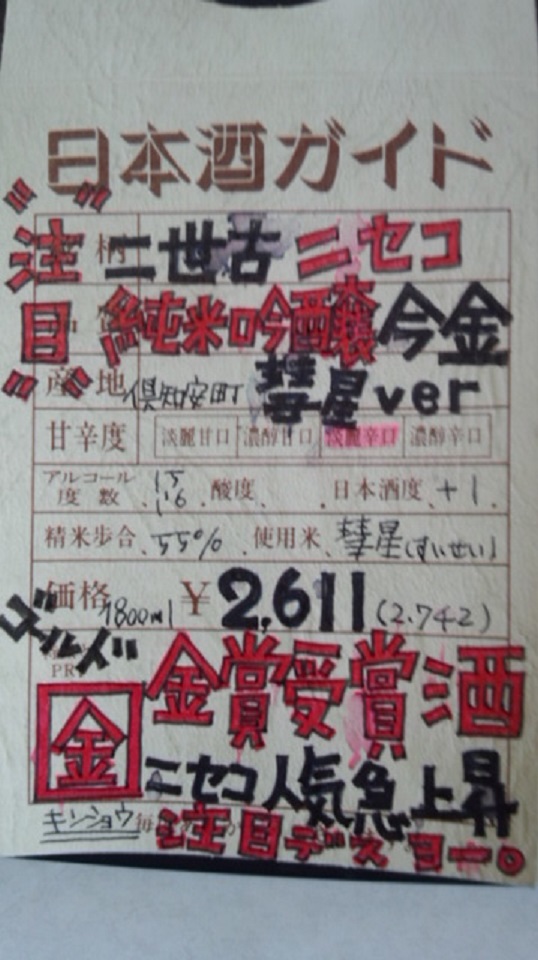 日本酒ガイド
"注目"
柄 二世古 ニセコ
純米吟醸 今金
産地 倶知安町 彗星ver
甘辛度 淡麗甘口 濃醇甘口 淡麗辛口 濃醇辛口
アルコール度数 15 16 酸度 日本酒度 +1
精米歩合 55% 使用米 彗星(すいせい)
価格 1800ml ¥2,611(2.742)
PR
金 金賞受賞酒
ニセコ人気急上昇
キンショウ
注目デスョー。